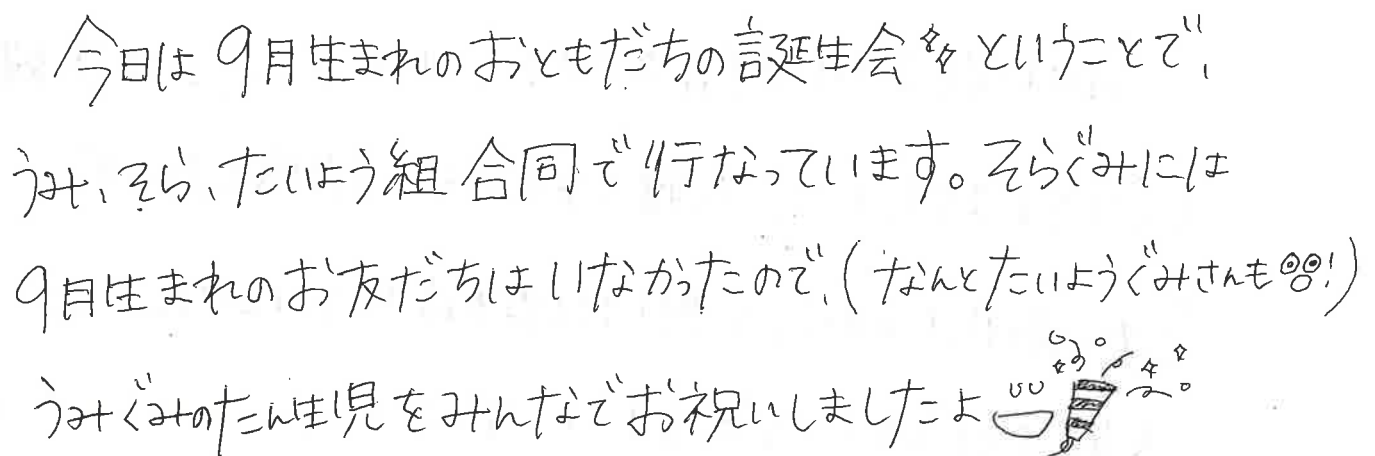 今日は9月生まれのおともだちの誕生会☆☆ということで、
うみ、そら、たいよう組合同で行なっています。そらぐみには
9月生まれのお友だちはいなかったので、(なんとたいようぐみさんも!)
うみぐみのたん生児をみんなでお祝いしましたよ